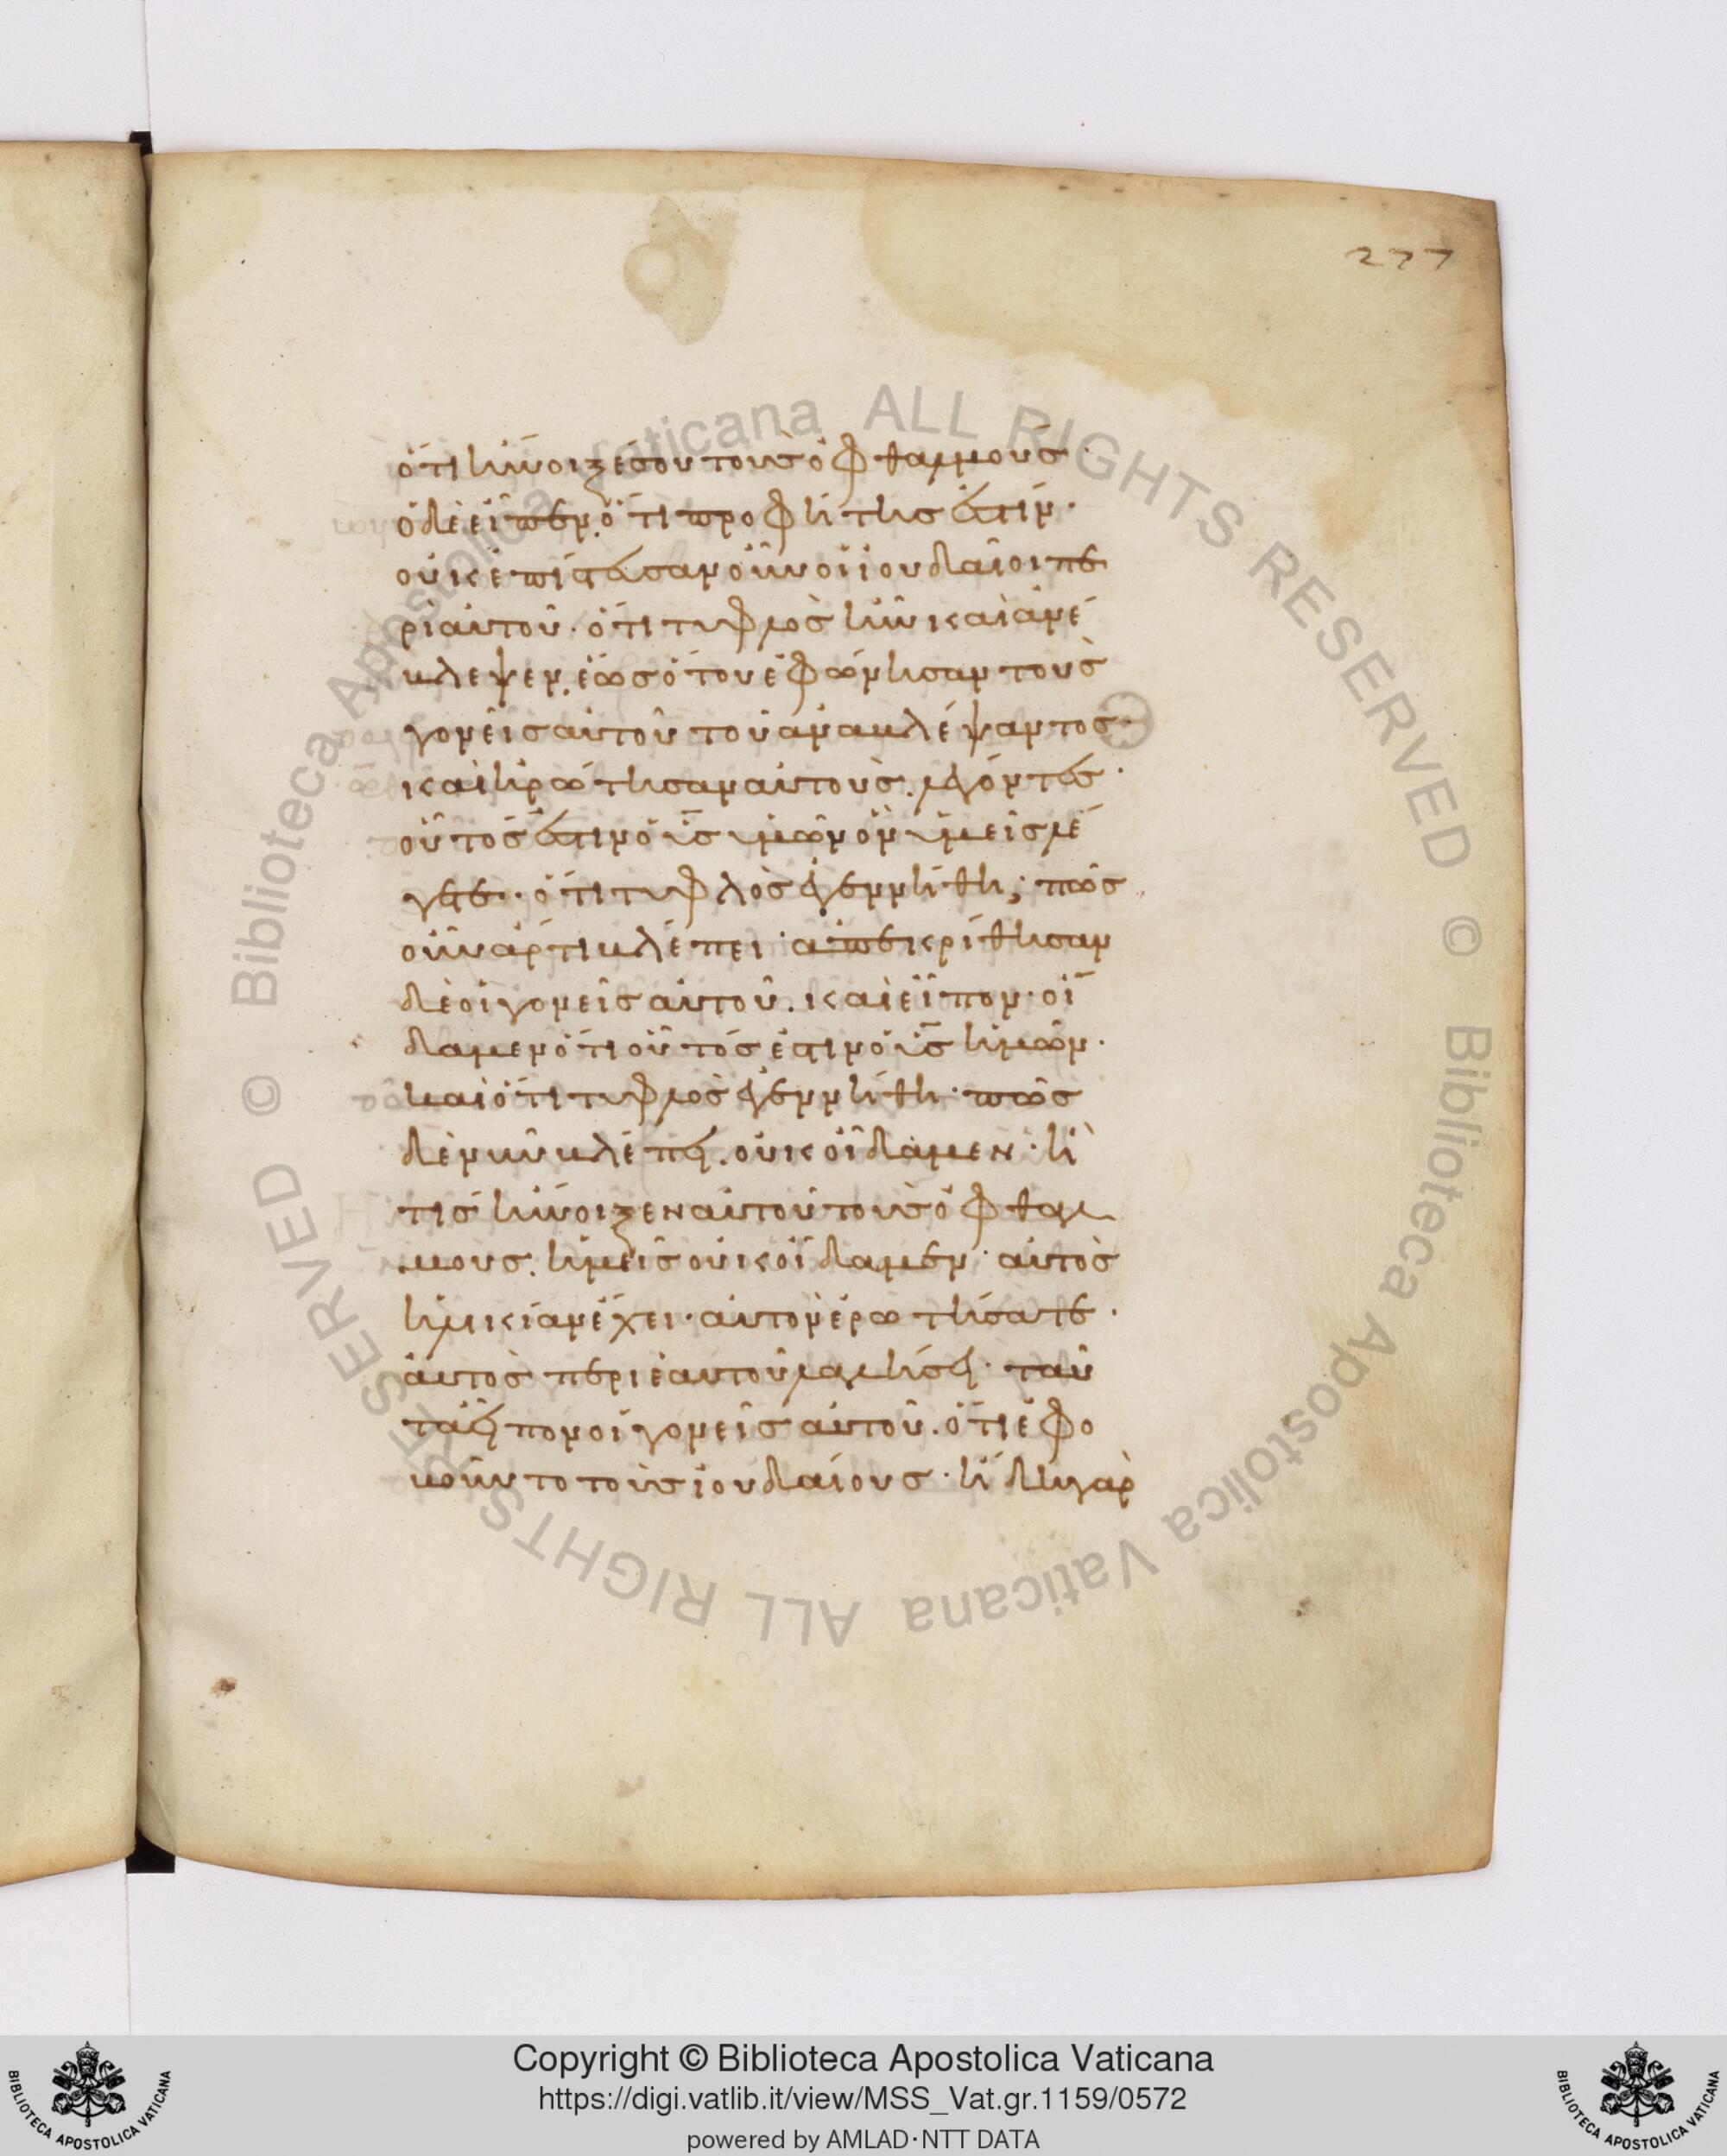 277
ὅτι ἤνοιξέ σου τοὺς ὀφθαλμούς·
ὁ δὲ εἶπεν. ὅτι προφήτης ἐστίν·
οὐκ ἐπίστευσαν οὖν οἱ ἰουδαῖοι πε
ρὶ αὐτοῦ· ὅτι τυφλὸς ἦν καὶ ἀνέ
βλεψεν. ἕως ὅτου ἐφώνησαν τοὺς
γονεῖς αὐτοῦ τοῦ ἀναβλέψαντος·
καὶ ἠρώτησαν αὐτοὺς. λέγοντες·
οὗτός ἐστιν ὁ υ̅ς̅ ὑμῶν ὃν ὑμεῖς λέ
γετε· ὅτι τυφλὸς ἐγεννήθη; πῶς
οὖν ἄρτι βλέπει· ἀπεκρίθησαν
δὲ οἱ γονεῖς αὐτοῦ. καὶ εἶπον· οἴ
δαμεν ὅτι οὗτός ἐστιν ὁ υ̅ς̅ ἡμῶν·
καὶ ὅτι τυφλὸς ἐγεννήθη· πῶς
δὲ νῦν βλέπει. οὐκ οἴδαμεν· ἢ
τίς ἤνοιξεν αὐτοῦ τοὺς ὀφθαλ
μους. ἡμεῖς οὐκ οἴδαμεν· αὐτὸς
ἡλικίαν ἔχει· αὐτὸν ἐρωτήσατε·
αὐτὸς περὶ ἑαυτοῦ λαλήσει· ταῦ
τα εἶπον οἱ γονεῖς αὐτοῦ. ὅτι ἐφο
βοῦντο τοὺς ἰουδαίους· ἤδη γὰρ
© Biblioteca Apostolica Vaticana ALL RIGHTS RESERVED
© Biblioteca Apostolica Vaticana ALL RIGHTS RESERVED
BIBLIOTECA APOSTOLICA VATICANA
Copyright © Biblioteca Apostolica Vaticana
https://digi.vatlib.it/view/MSS_Vat.gr.1159/0572
powered by AMLAD·NTT DATA
BIBLIOTECA APOSTOLICA VATICANA